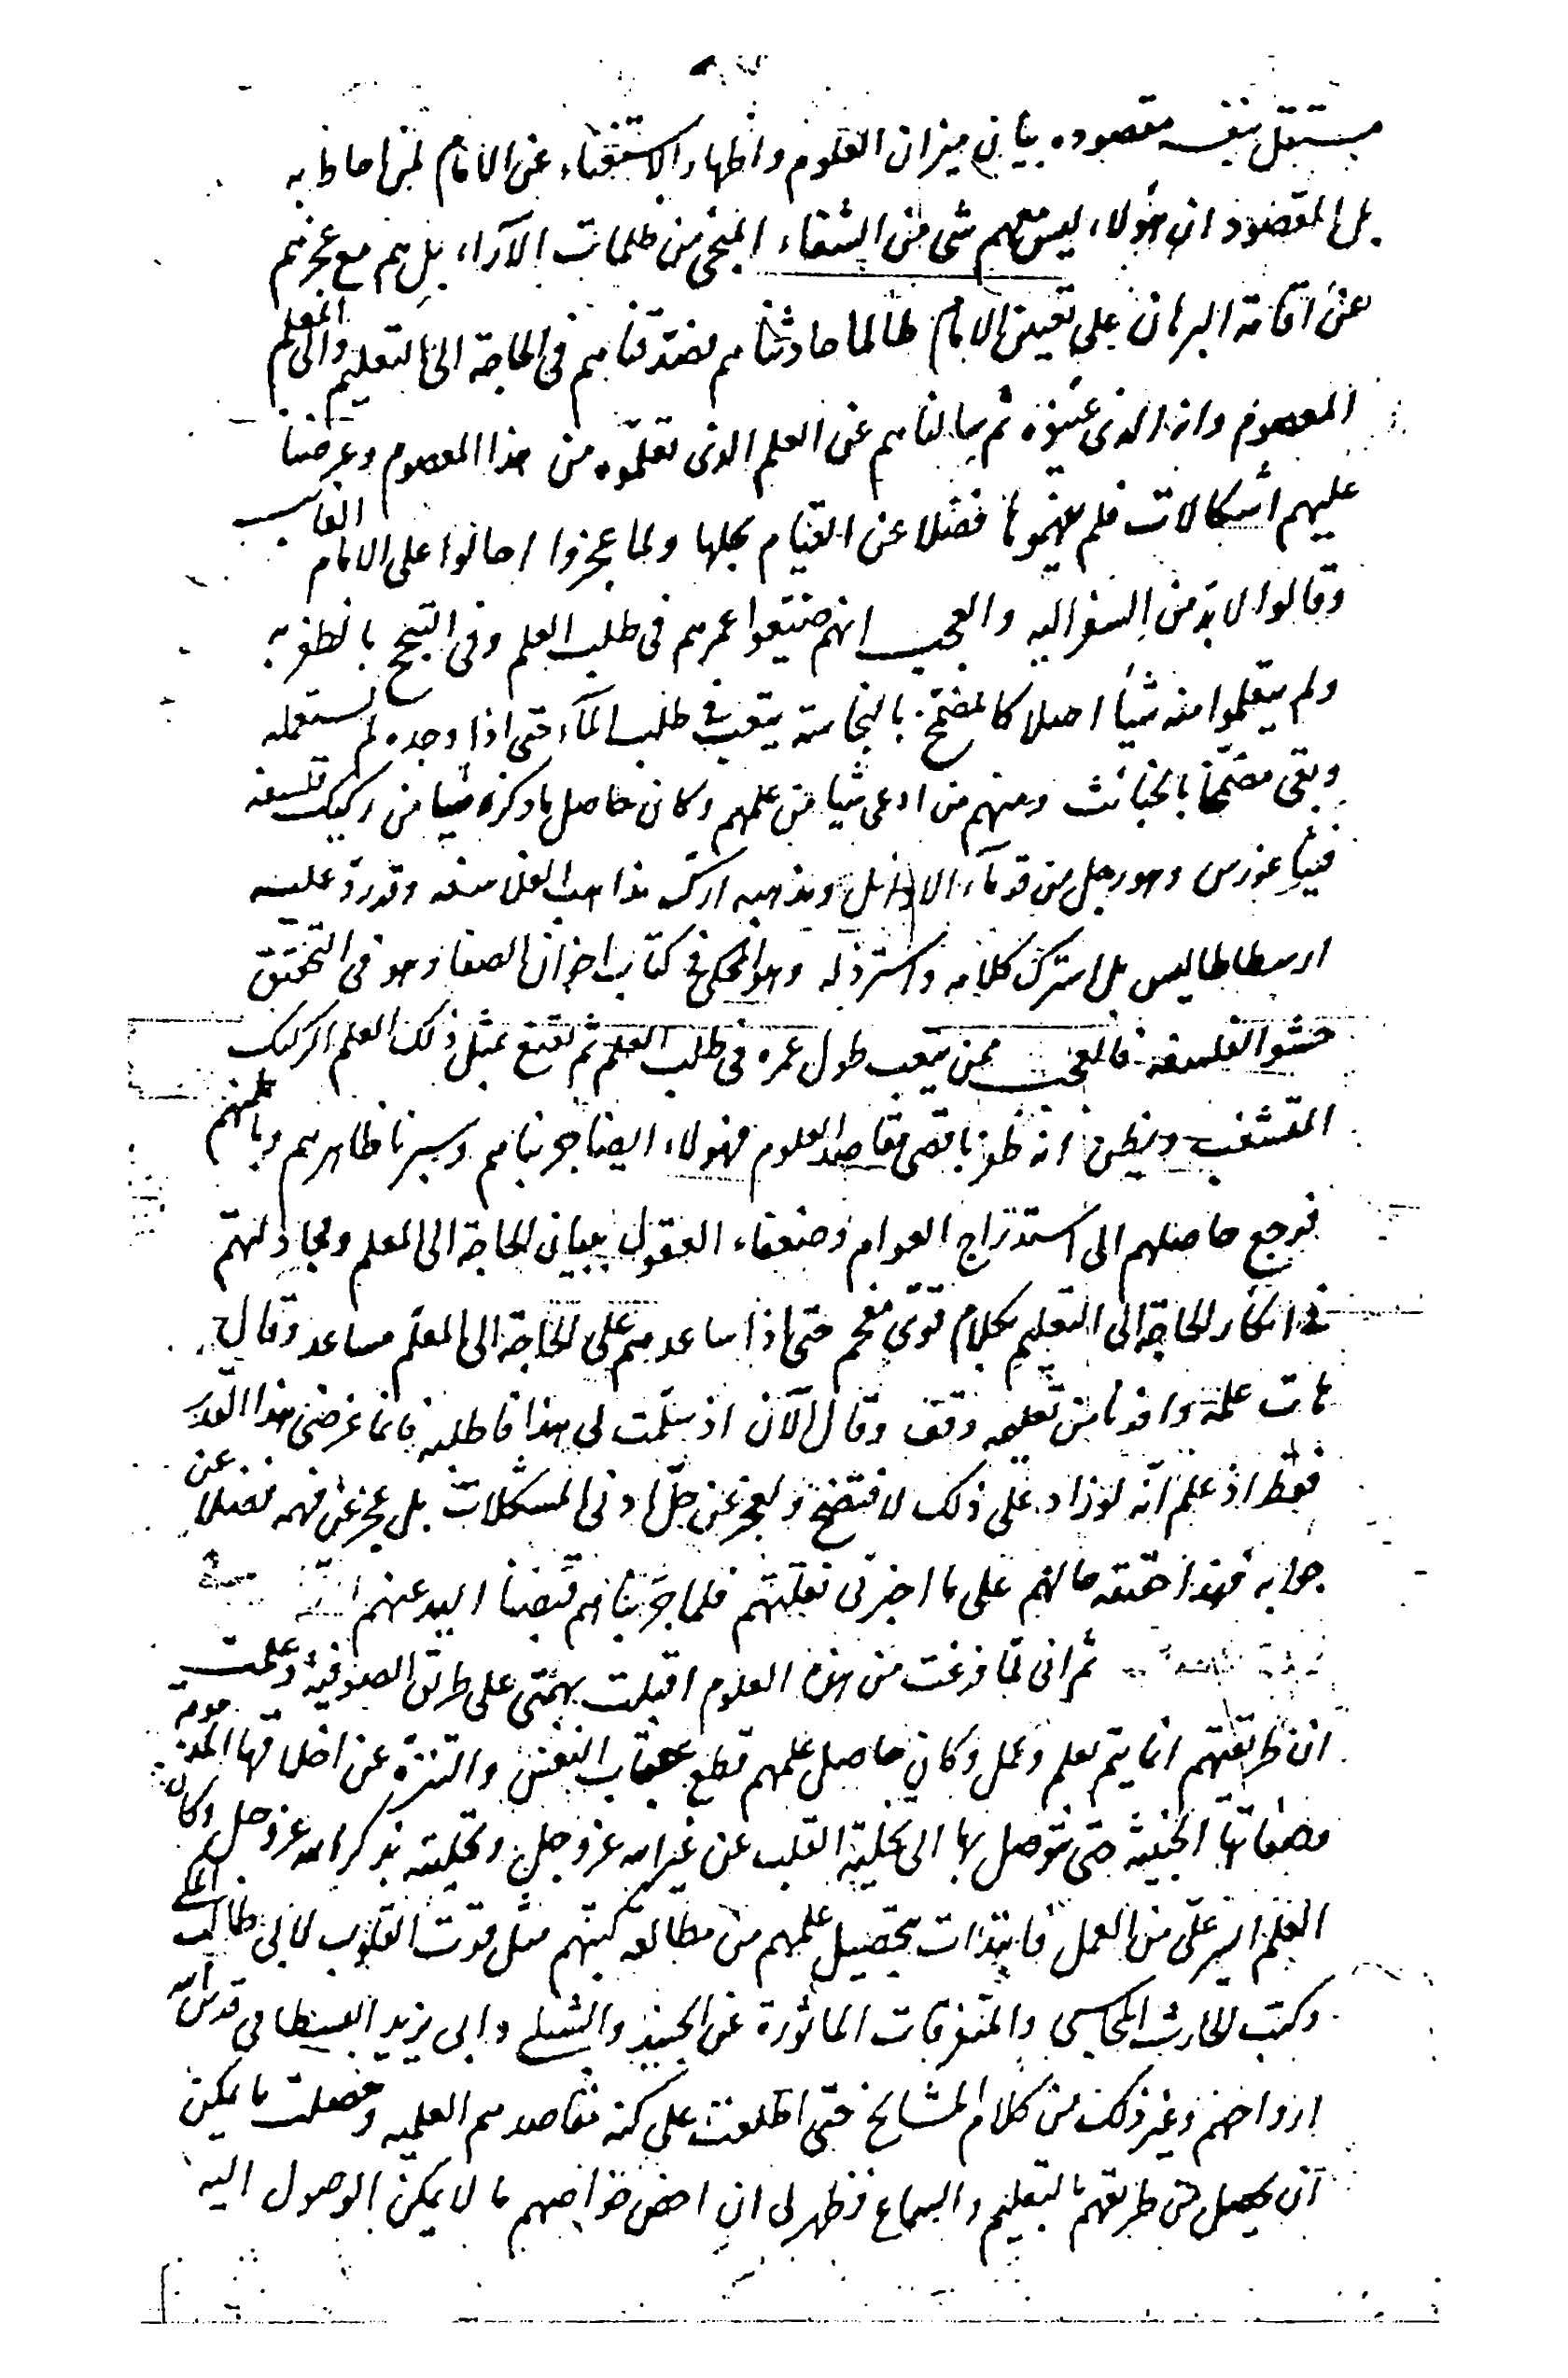 مستقل بنفسه مقصوده بيان ميزان العلوم واظهار الاستغناء عن الامام لمن احاط به
بل المقصود ان هولاء ليس معهم شى من الشفاء المنجى من ظلمات الآراء بل هم مع عجزهم
عن اقامة البرهان على تعيين الامام طالما جادثناهم فصدقناهم فى الحاجة الى التعليم والى المعلم
المعصوم وانه الذى عينوه ثم سالناهم عن العلم الذى تعلموه من هذا المعصوم وعرضنا
عليهم اشكالات فلم يفهموها فضلا عن القيام بحلها ولما عجزوا احالوا على الامام الغايب
وقالوا لا بد من السفر اليه والعجب انهم ضيعوا عمرهم فى طلب العلم وفى التبجح بالظفر به
ولم يتعلموا منه شيأ اصلا كالمضمخ بالنجاسة يتعب فى طلب الماء حتى اذا وجده لم يستعمله
وبقى مضمخا بالخبائث ومنهم من ادعى شيا من علمهم وكان حاصل ما ذكره شيا من ركيك فلسفة
فيثاغورس وهو رجل من قدماء الاوائل ومذهبه ارك مذاهب الفلاسفه وقد رد عليه
ارسطاطاليس بل استرك كلامه واسترذله وهو المحكى فى كتاب اخوان الصفا وهو فى التحقيق
حشو الفلسفه فالعجب ممن يتعب طول عمره فى طلب العلم ثم يقنع بمثل ذلك العلم الركيك
المستغث ويظن انه ظفر باقصى مقاصد العلوم فهولاء ايضا جربناهم وسبرنا ظاهرهم وباطنهم
فرجع حاصلهم الى استدراج العوام وضعفاء العقول ببيان الحاجة الى المعلم ومجادلتهم
فى انكار الحاجة الى التعليم بكلام قوى مفحم حتى اذا ساعدهم على الحاجة الى المعلم مساعد وقال
هات علمه وافدنا من تعليمه وقف وقال الآن اذ سلمت لى هذا فاطلبه فانما غرضى هذا القدر
فقط اذ علم انه لو زاد على ذلك لافتضح ولعجز عن حل ادنى المشكلات بل عجز عن فهمه فضلا عن
جوابه فهذا حقيقه حالهم على ما اخبرنى نقلتهم فلما جربناهم قبضنا اليد عنهم
ثم انى لما فرغت من هذه العلوم اقبلت بهمتى على طرق الصوفيه وعلمت
ان طريقتهم انما يتم بعلم وعمل وكان حاصل علمهم قطع عقاب النفس والتنزه عن اخلاقها المذمومة
وصفاتها الخبيثه حتى يتوصل بها الى تخلية القلب عن غير الله عز وجل وتحليته بذكر الله عز وجل وكان
العلم ايسر على من العمل فابتدات بتحصيل علمهم من مطالعة كتبهم مثل قوت القلوب لابى طالب المكى
وكتب الحارث المحاسبى والمتفرقات الماثورة عن الجنيد والشبلى وابى يزيد البسطامى قدس الله
ارواحهم وغير ذلك من كلام المشايخ حتى اطلعت على كنه مقاصدهم العلميه وحصلت ما يمكن
ان يحصل من طريقهم بالتعليم والسماع فظهر لى ان اخص خواصهم ما لا يمكن الوصول اليه